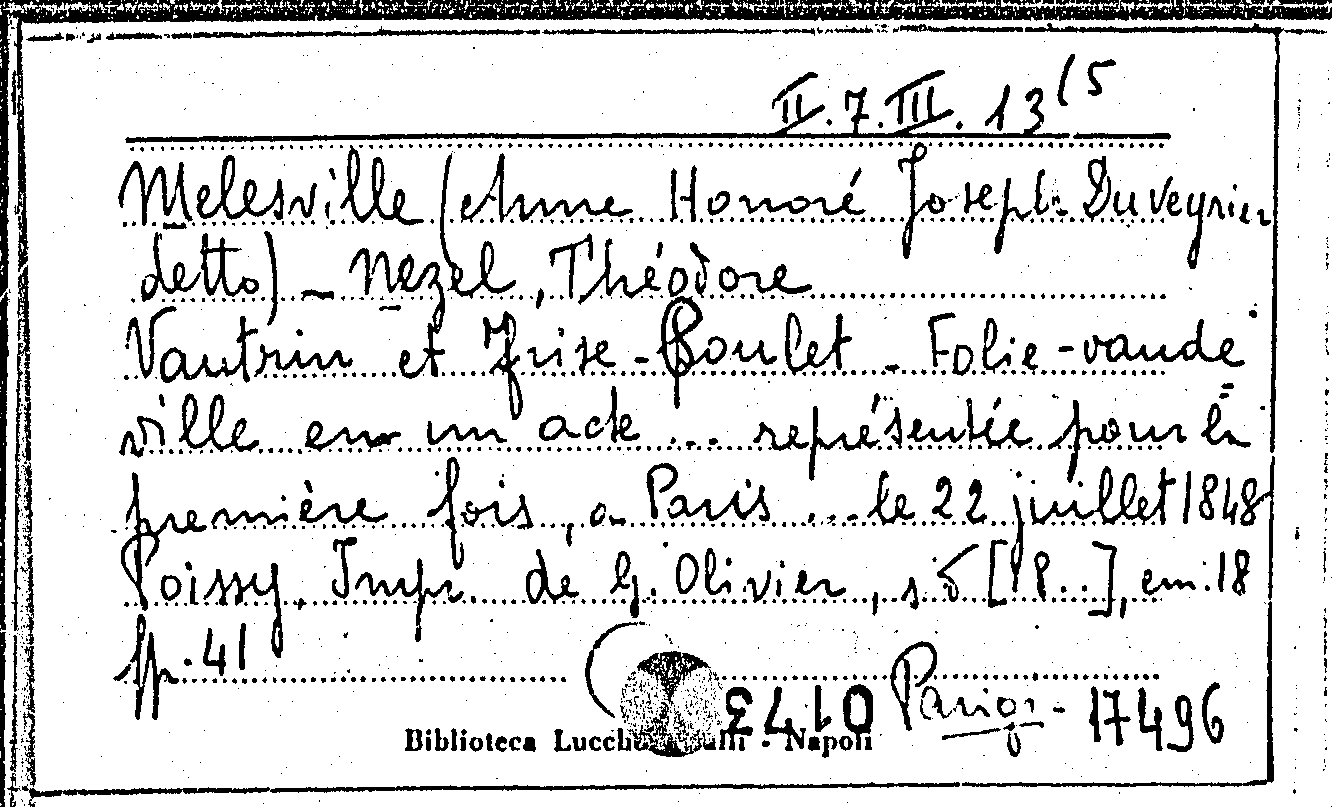 II.7.III.13(5
Melesville (Anne Honoré Joseph Duveyrier
detto) - Nezel, Théodore
Vautrin et Frise-Poulet - Folie-vaude=
ville en un acte ... représentée pour la
première fois, a Paris ... le 22 juillet 1848
Poissy, Impr. de G. Olivier, s.d [18..], em. 18
pp. 41
01 73
17496
Biblioteca Napoli